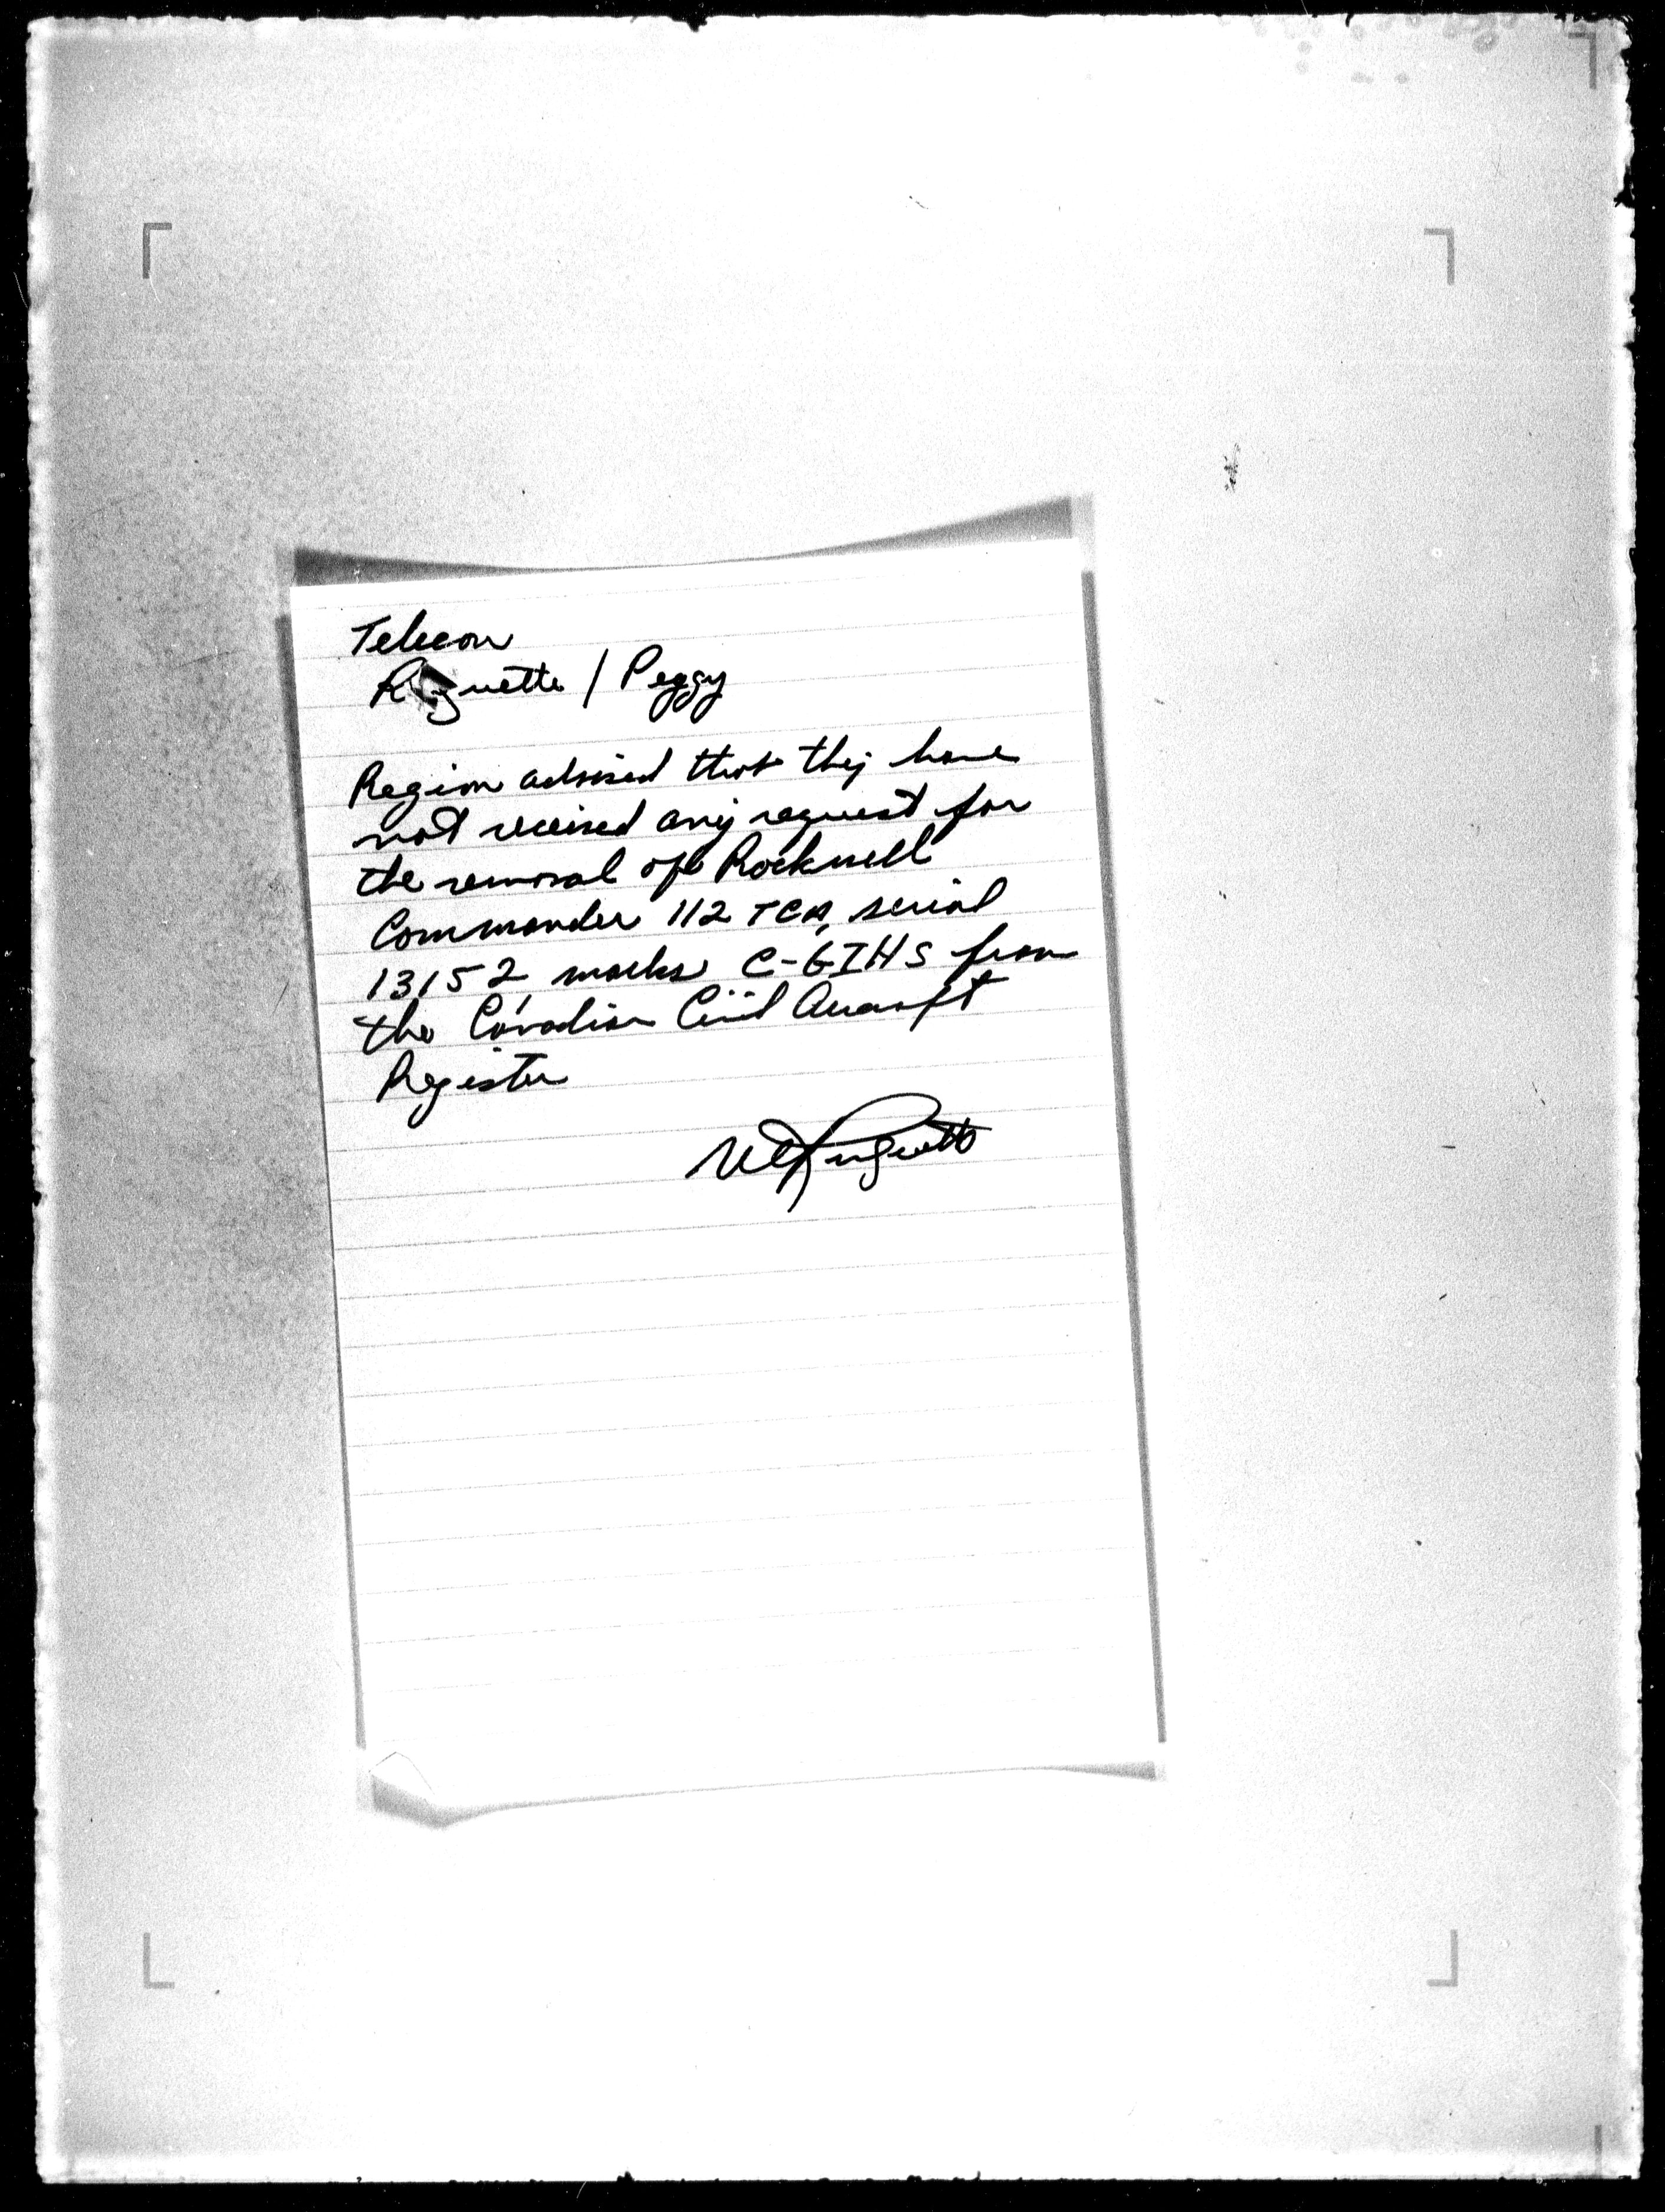 Telecon
/ Peggy
Region advised that they have
not received any request for
the removal of Rockwell
Commander 112 TCA, serial
13152, marks C-GIHS from
the Canadian Civil Aircraft
Register